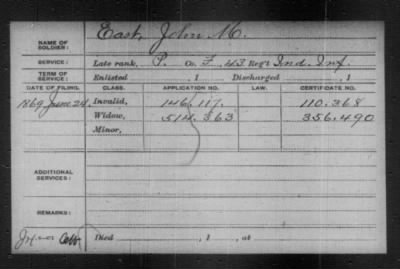 NAME OF SOLDIER: East, John M.
SERVICE: Late rank, P. Co. F, 43 Reg't Ind. Inf.
TERM OF SERVICE: Enlisted , 1 Discharged , 1
DATE OF FILING. CLASS. APPLICATION NO. LAW. CERTIFICATE NO.
1869 June 24 Invalid, 146.117. 110.368
Widow, 514.363 356.490
Minor,
ADDITIONAL SERVICES:
REMARKS:
Died , 1 , at